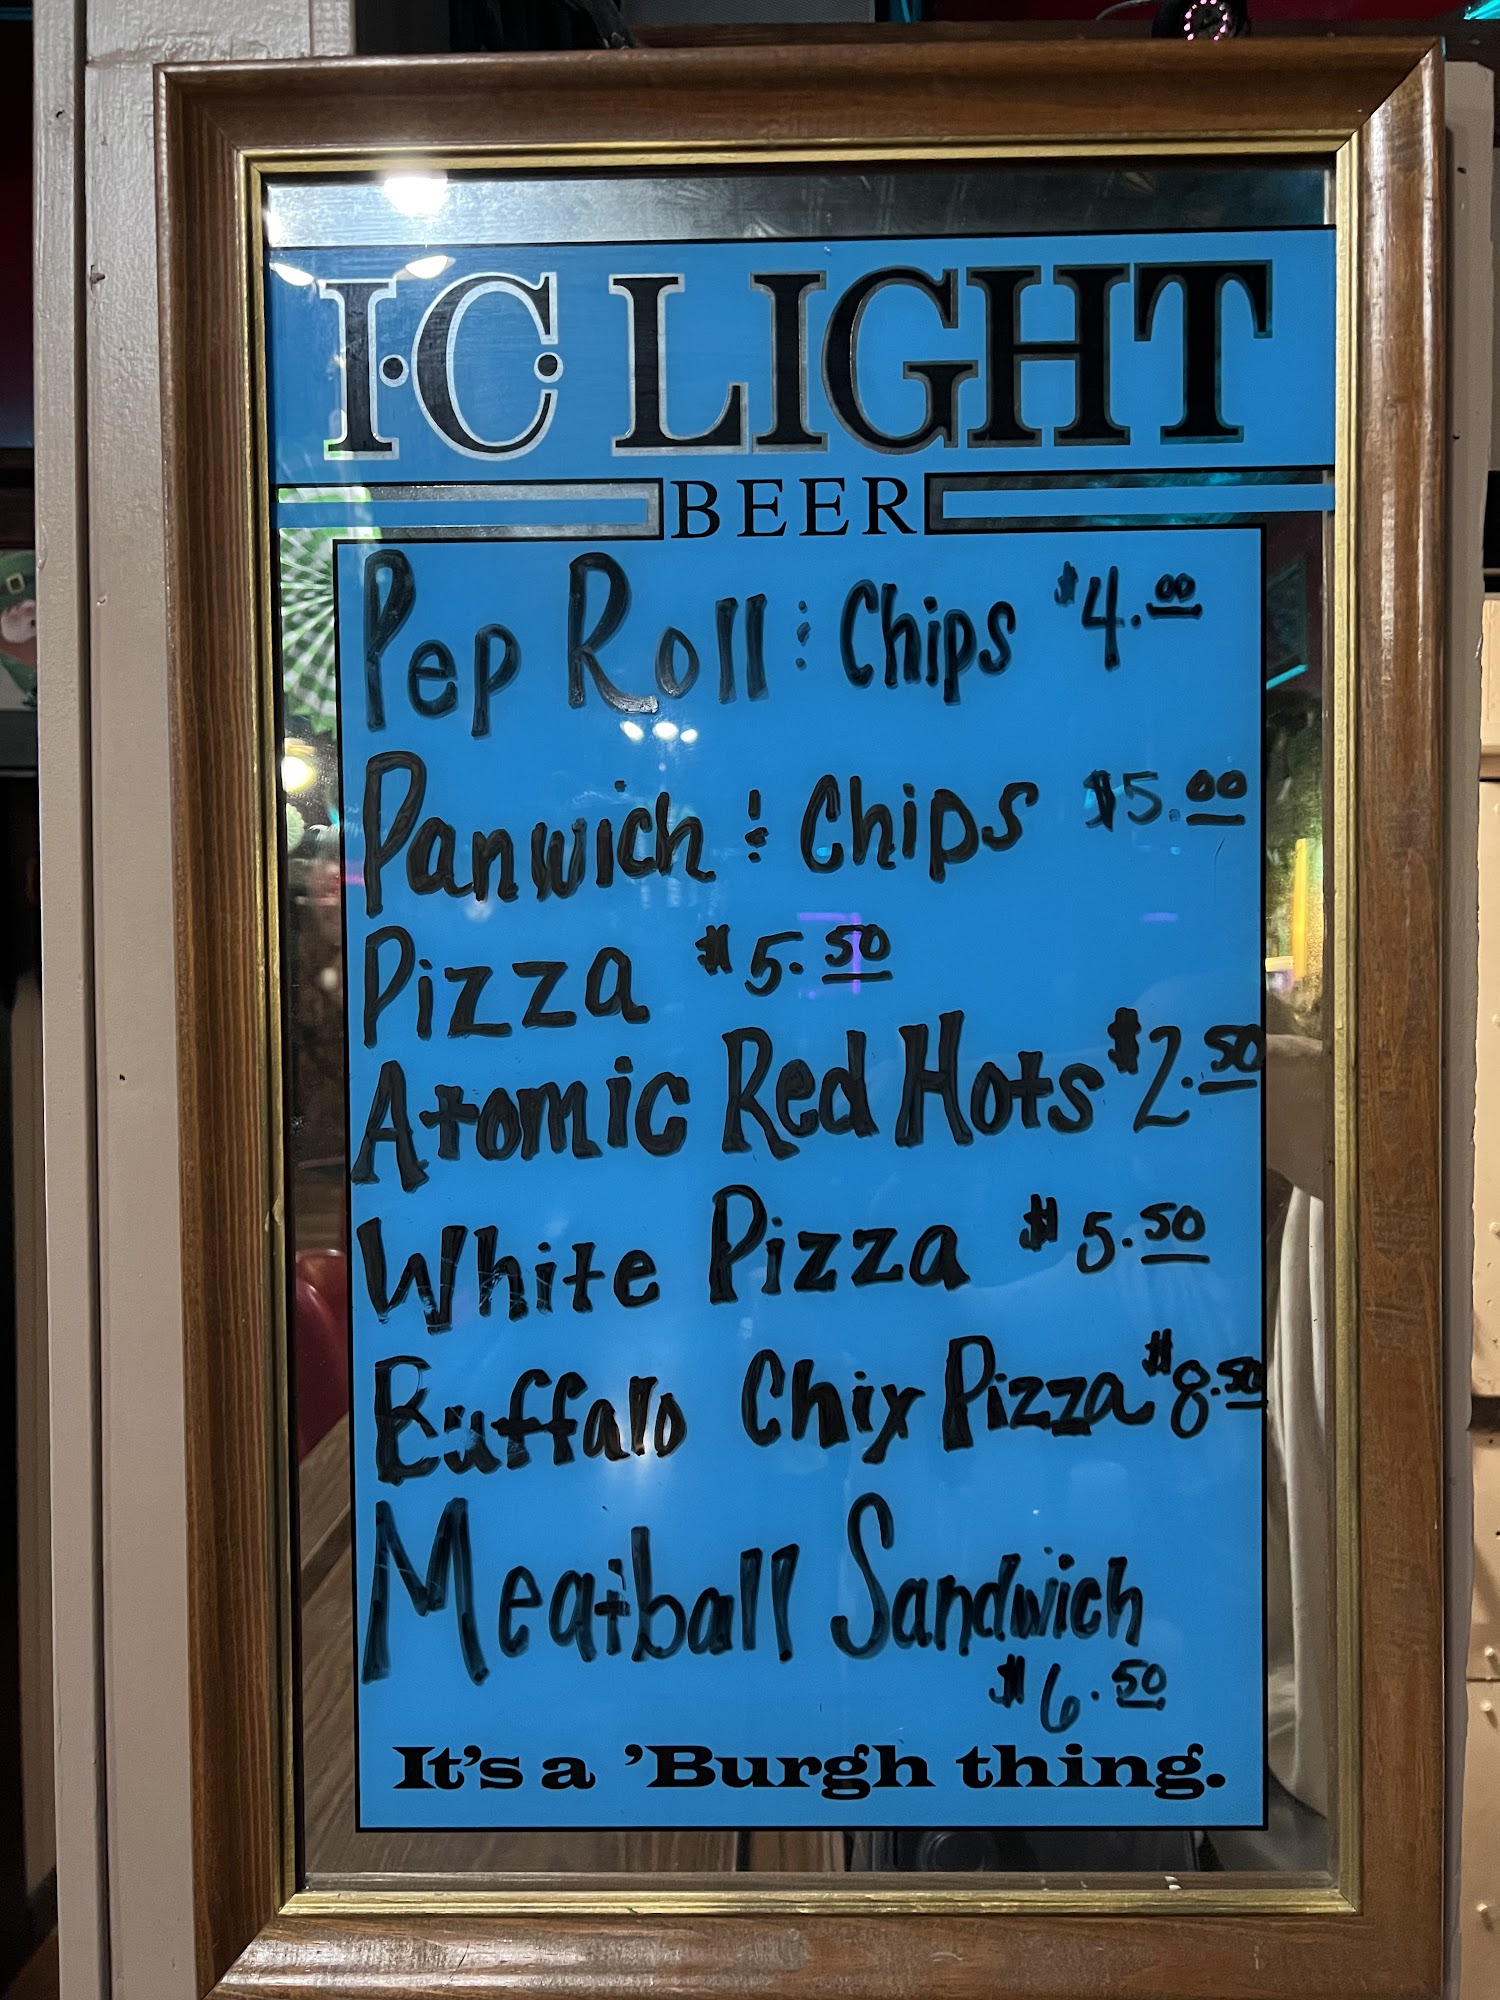 I·C· LIGHT
BEER
Pep Roll & Chips $4.00
Panwich & Chips $5.00
Pizza $5.50
Atomic Red Hots $2.50
White Pizza $5.50
Buffalo Chix Pizza $8.50
Meatball Sandwich
$6.50
It's a 'Burgh thing.